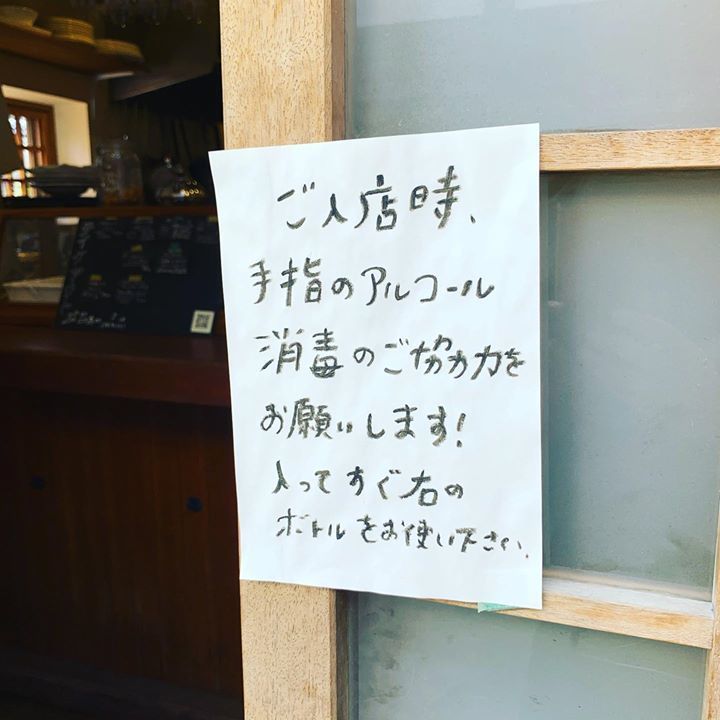 ご入店時、
手指のアルコール
消毒のご協力を
お願いします!
入ってすぐ右の
ボトルをお使い下さい。